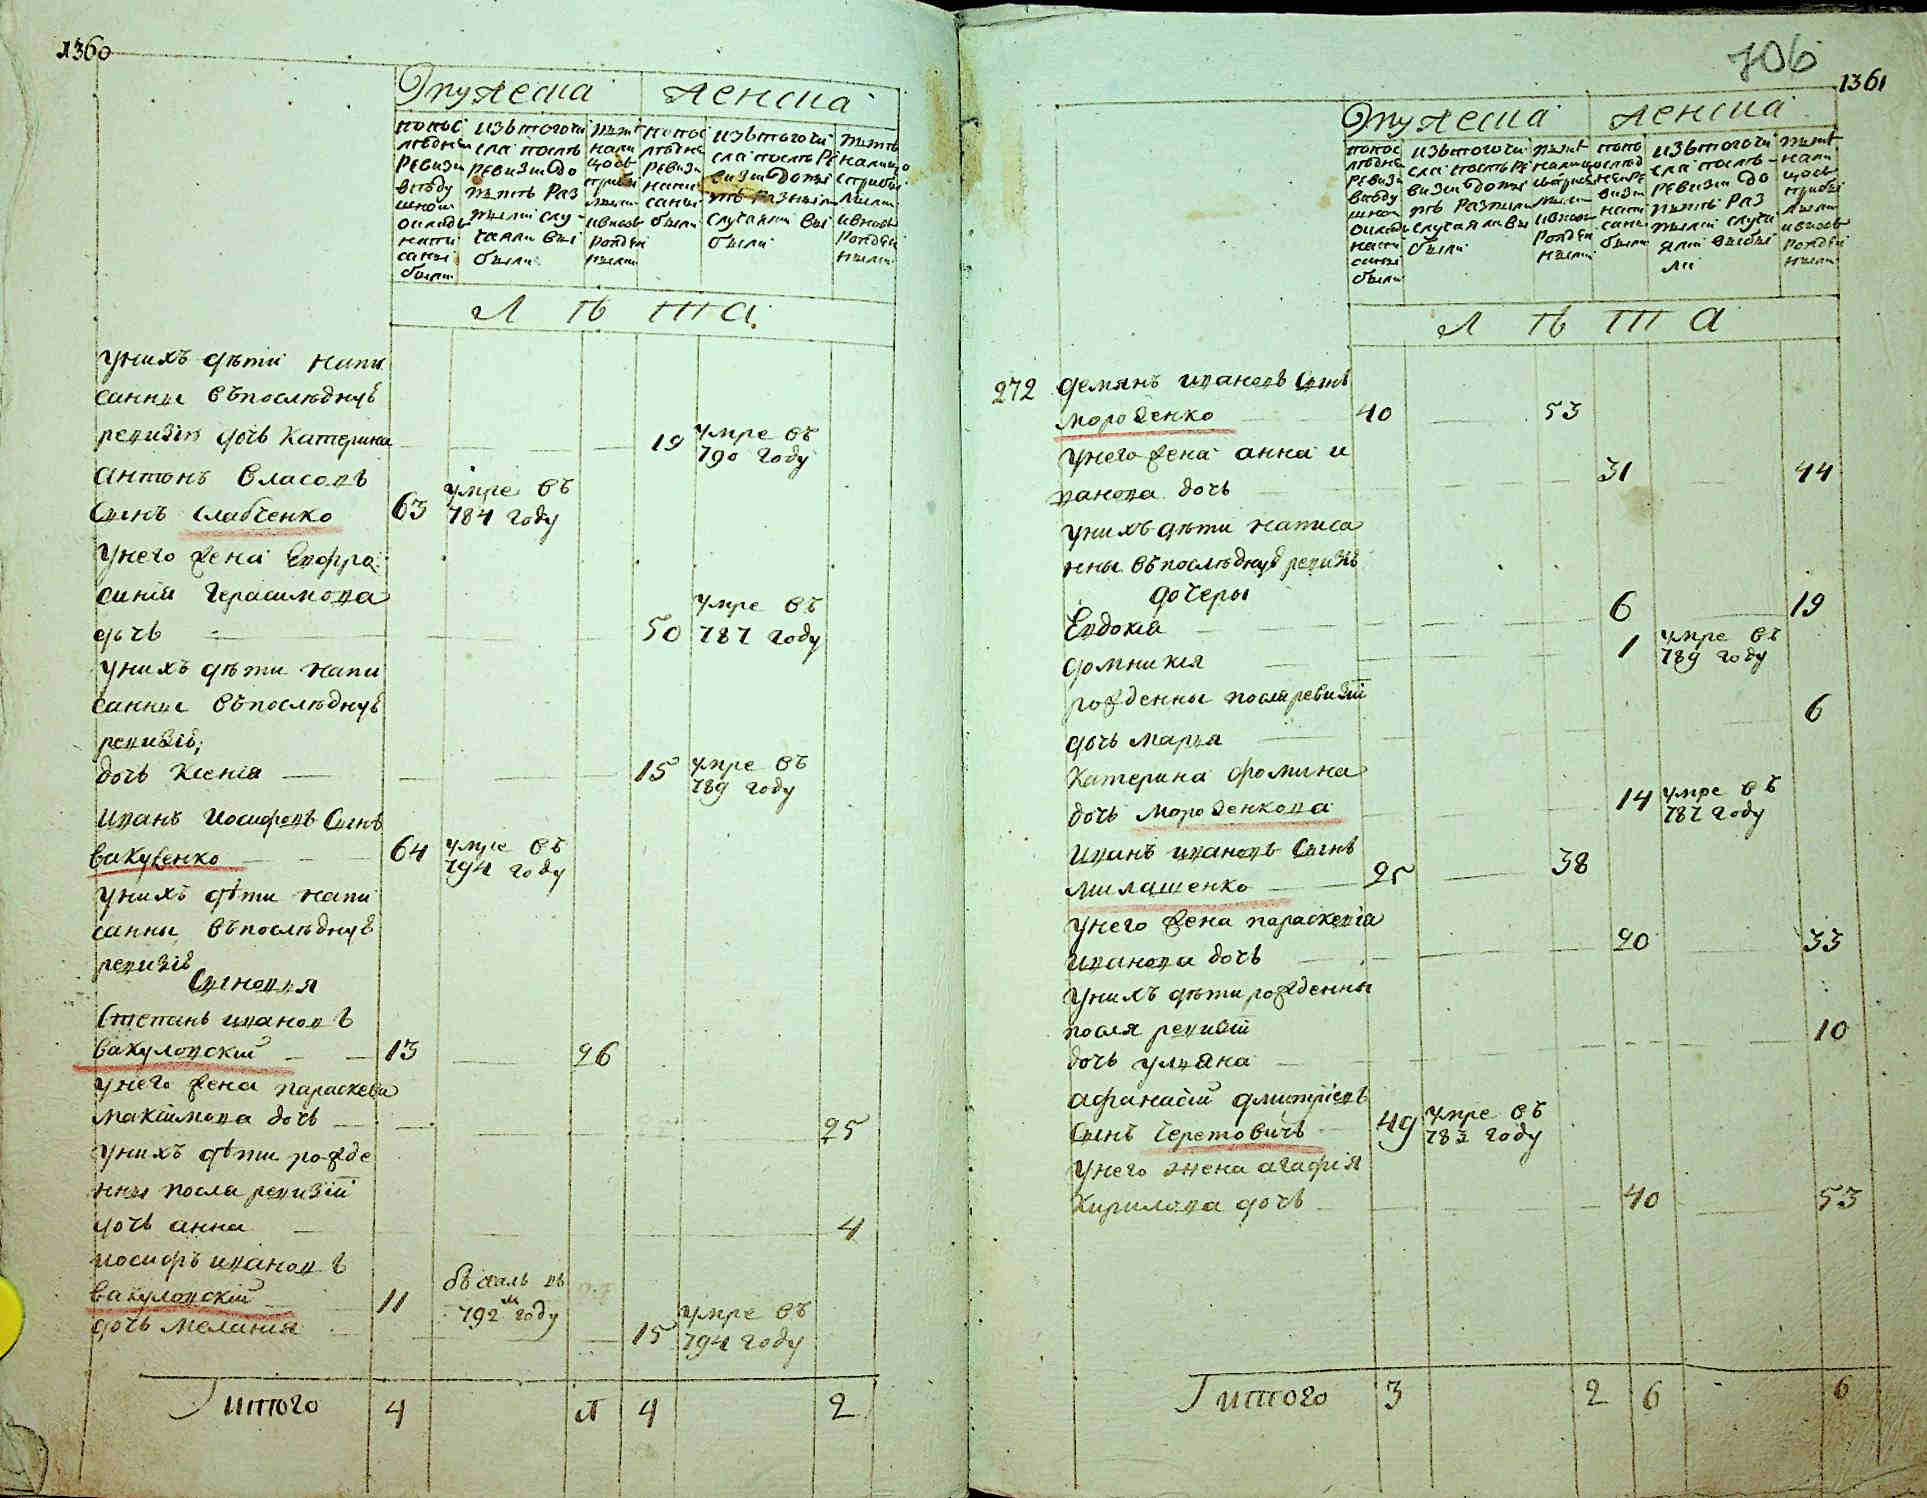 1360
Мужеска женска
попос
лѣдней
ревизіи
вподу
шной
окладъ
напи
саны
были
изътогочи
сла послѣ
ревизіи до
нынѣ раз
ными слу-
чаями вы
были
нынѣ
нали
цосъ
прибы
лыми
ивновь
рожден
ными
попос
лѣдне
ревизи
напи
саны
были
изътогочи
сла послѣ ре
визіи доны
нѣ разными
случаями вы
были
нынѣ
налицо
сприбы
лыми
ивновь
рожден
ными
Л ѣ т а
унихъ дѣти напи
санные въпослѣднуѣ
ревизіи дочь катерина 19 умре въ
790 году
антонъ власовъ
сынъ слабченко 63 умре въ
784 году
унего жена Евфро
синія герасимова
дочь 50 умре въ
787 году
унихъ дѣти напи
санные въпослѣднуѣ
ревизіѣ;
дочь ксенія 15 умре въ
789 году
иванъ иосифовъ сынъ
вакуленко 64 умре въ
794 году
унихъ дѣти напи
санны въпослѣднуѣ
ревизіѣ
сыновья
степанъ ивановъ
вакуловскій 13 26
унего жена параскева
максимова дочь 25
унихъ дѣти рожде
нны посля ревизіи
дочь анна 4
иосифъ ивановъ
вакуловскій 11 бѣжалъ въ
792м году
дочь мелания 15 умре въ
794 году
итого 4 1 4 2
706
1361
Мужеска женска
попос
лѣдне
ревизи
вподу
шной
окладъ
напи
саны
были
изътогочи
сла послѣ ре
визіи доны
нѣ разными
случаями вы
были
нынѣ
налицо
сприбы
лыми
ивновь
рожден
ными
изътогочи
сла послѣ-
ревизіи до
нынѣ раз
ными случа
ями выбы
ли
нынѣ
нали
цосъ
прибы
лыми
ивновь
рожден
ными
Л ѣ т а
272 демянъ ивановъ сынъ
мороженко 40 53
унего жена анна и
ванова дочь 31 44
унихъ дѣти написа
нны въпослѣднуѣ ревизіѣ
дочеры
Евдокія 6 19
домникія 1 умре въ
789 году
рожденны послѣревизіи
дочь марья 6
катерина фомина
дочь мороженкова 14 умре въ
787 году
иванъ ивановъ сынъ
милашенко 25 38
унего жена параскевія
иванова дочь 20 33
унихъ дѣти рожденны
посля ревизіи
дочь ульяна 10
афанасій дмитріевъ
сынъ черетовичь 49 умре въ
783 году
унего жена агафія
кирилова дочь 40 53
итого 3 2 6 6